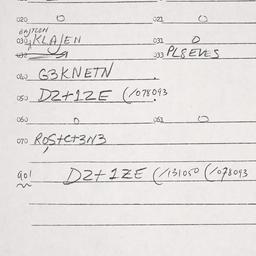 020 0 021 0
030 KLAJEN 031 0
032 033 PLSEVES
040 G3KNETN
050 DZ+1ZE (/078093
060 0 061 0
070 ROS+C+3N3
901 DZ+1ZE (/131050 (/078093